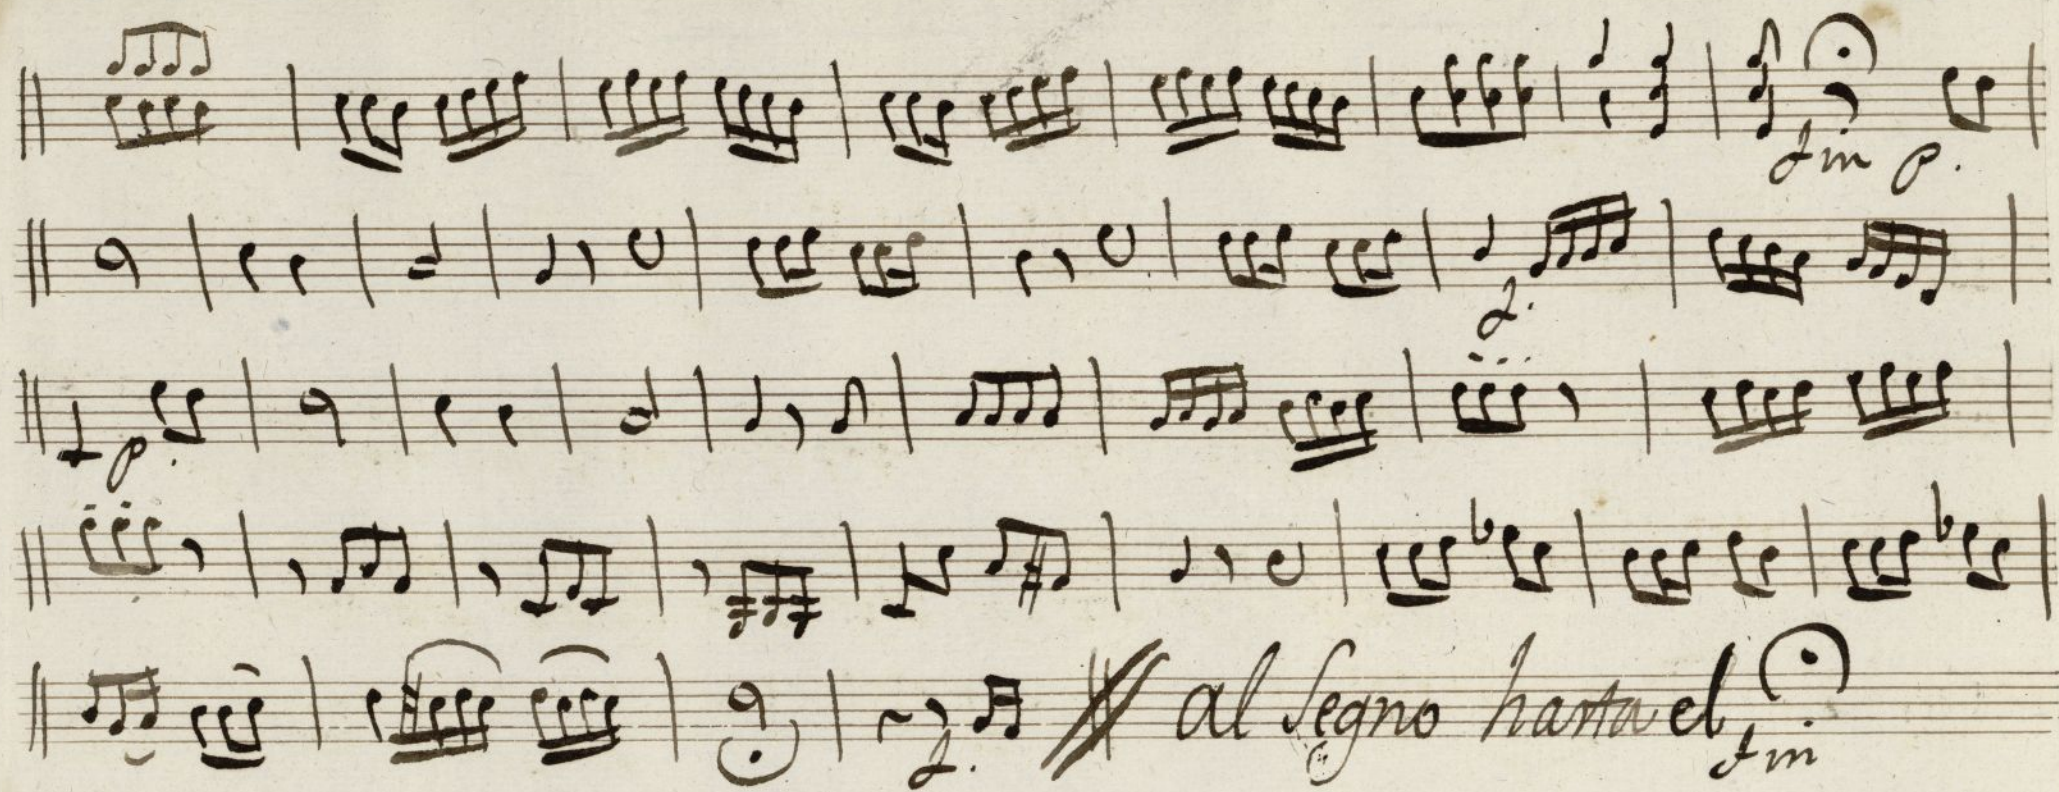 fin p.
f.
p.
f. al Segno hasta el fin